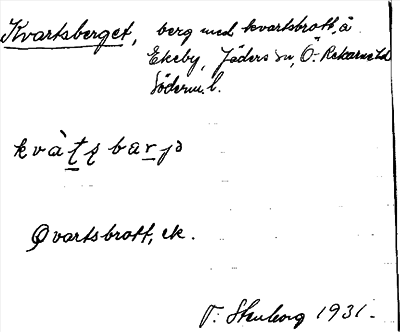 Kvartsberget, berg med kvartsbrott, å
Ekeby, Jäders sn, Ö. Rekarne hd
Söderm. l.
kvàt̲s̨ bar̲jə
Qvartsbrott, ek.
T. Stenborg 1931.